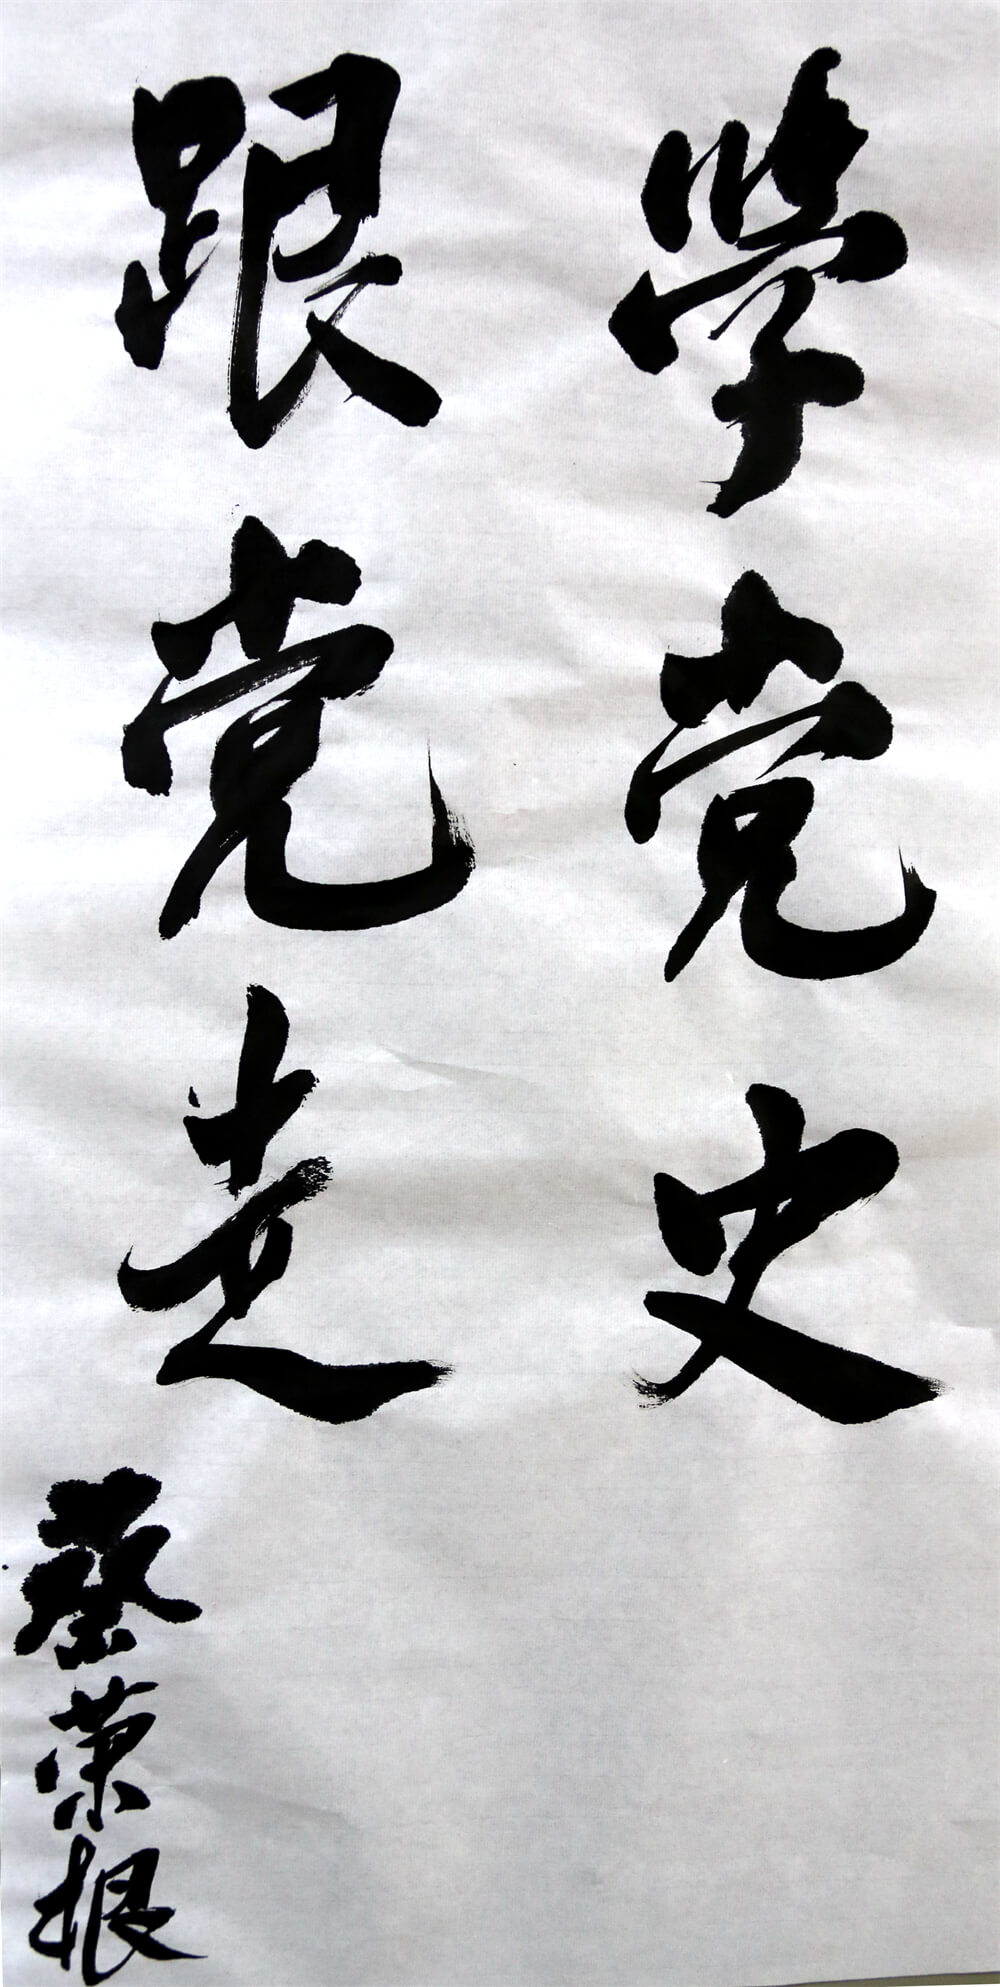 学党史
跟党走
蔡荣根